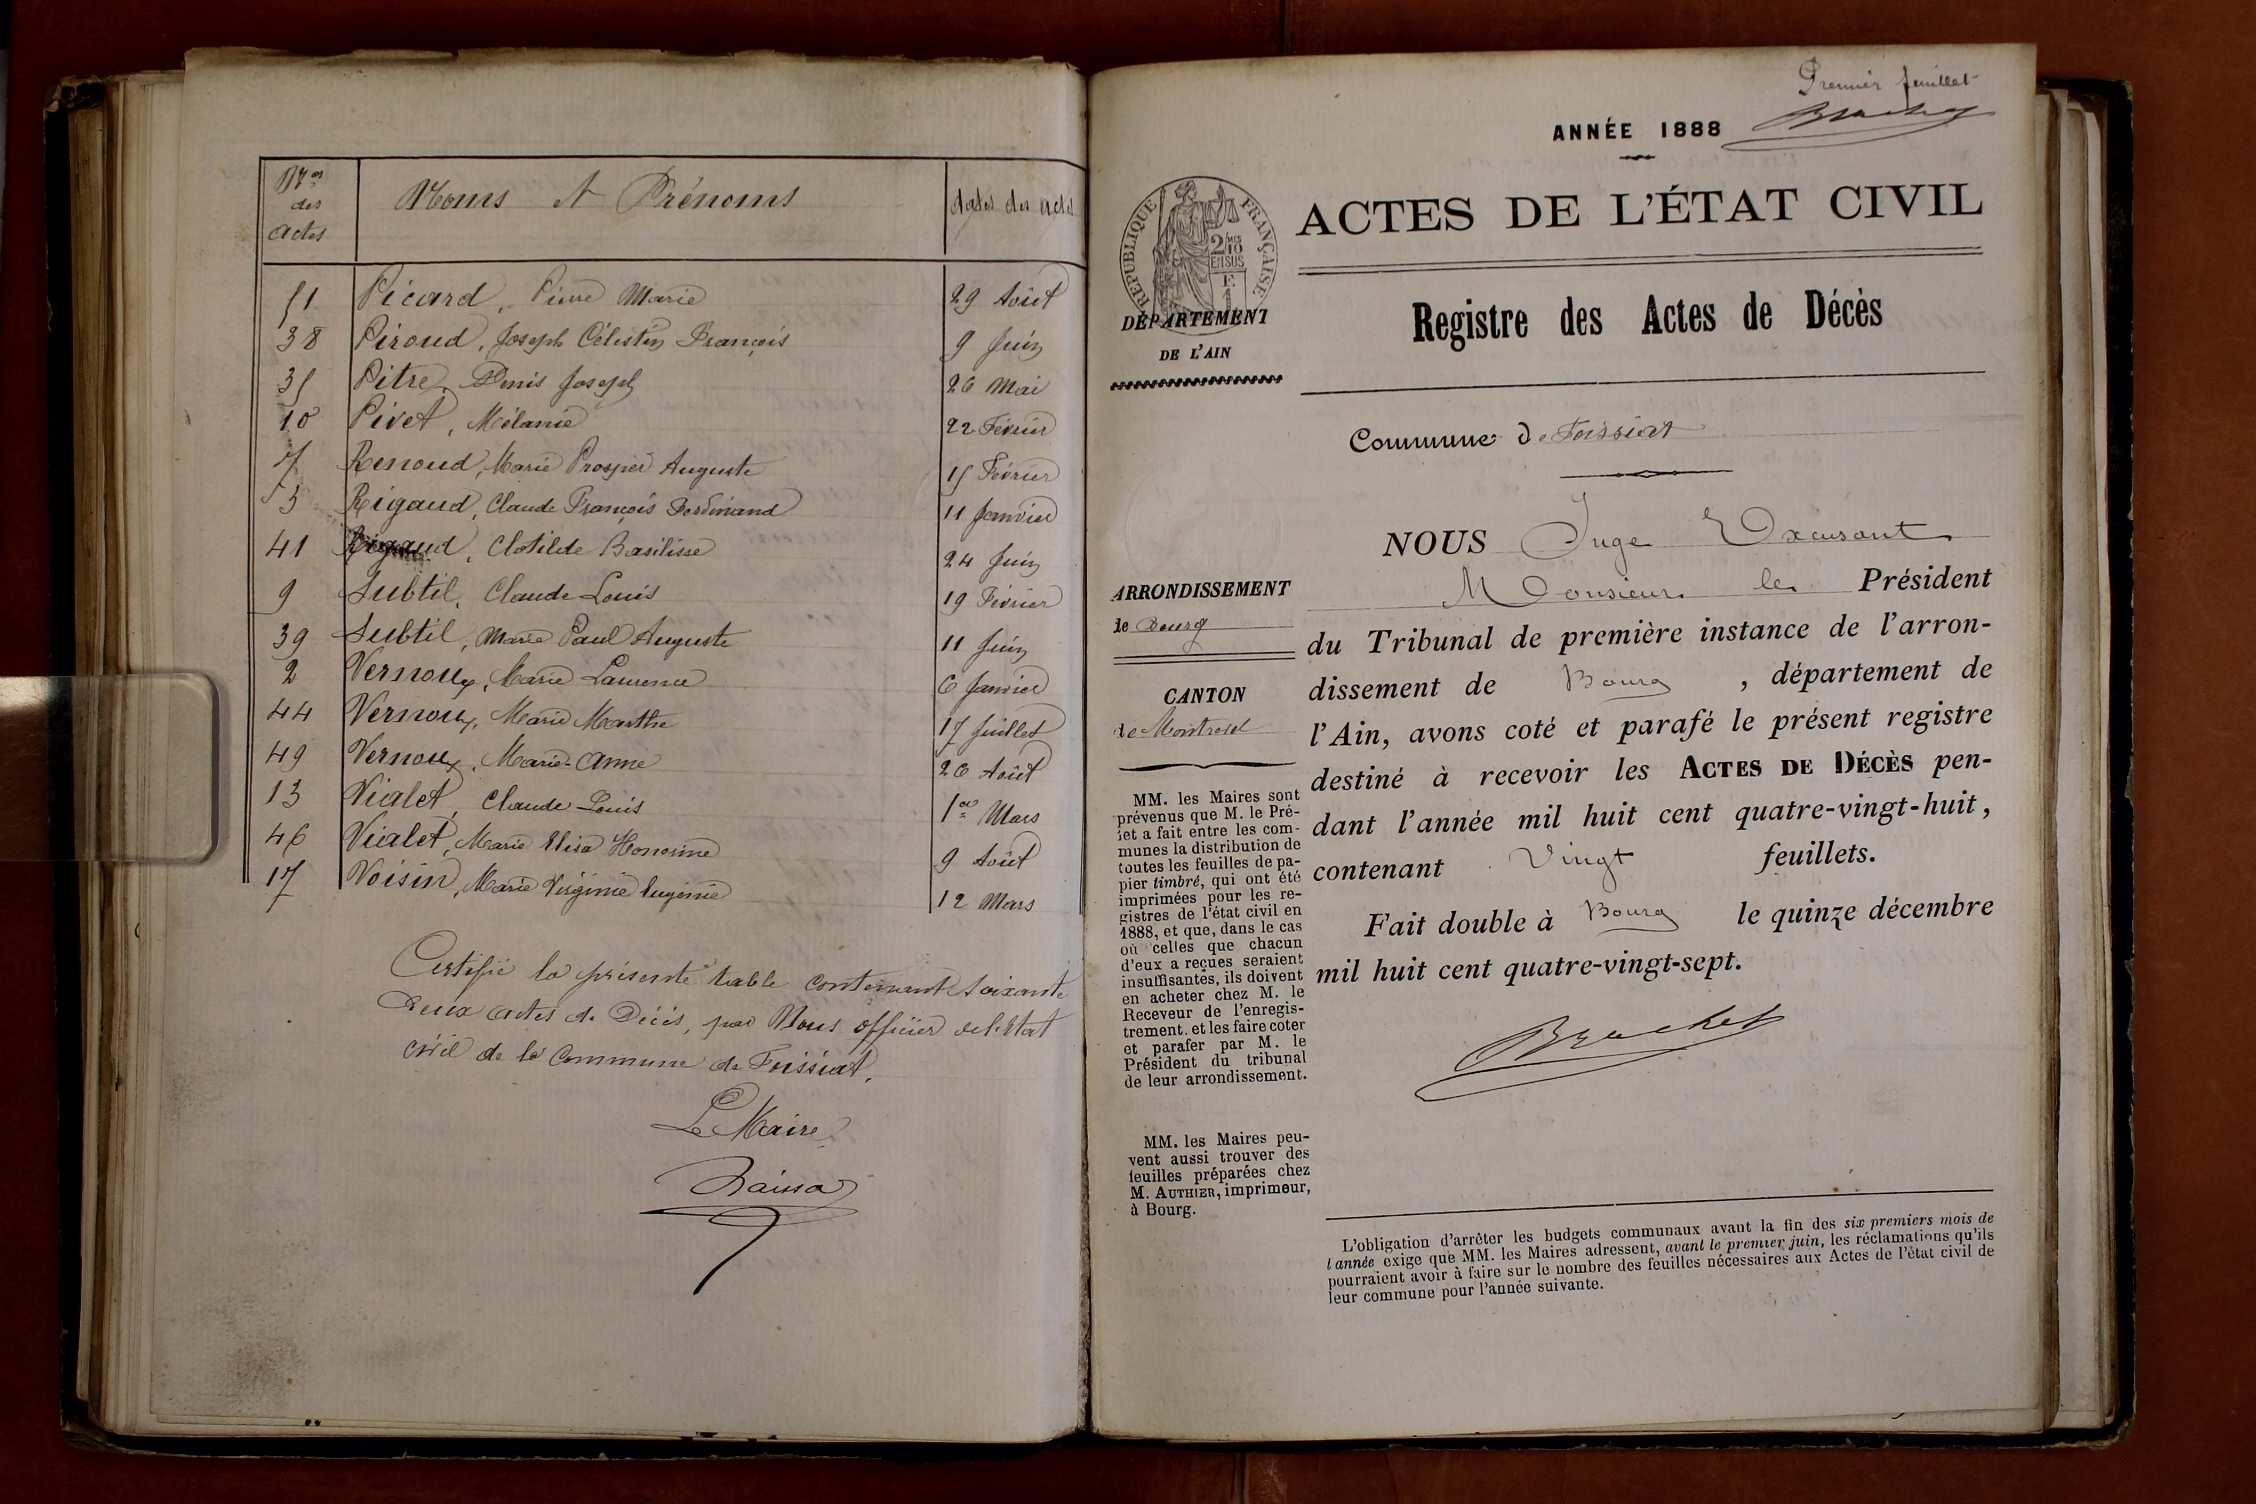 Nos
des
actes
Noms et Prénoms
dates des actes
51 Picard, Pierre Marie 29 Août
38 Piroud, Joseph Célestin François 9 Juin
35 Pitre, Denis Joseph 26 Mai
10 Pivet, Mélanie 22 Février
7 Renoud, Marie Prosper Auguste 15 Février
3 Rigaud, Claude François Ferdinand 11 Janvier
41 Rigaud, Clotilde Basilisse 24 Juin
9 Subtil, Claude Louis 19 Février
39 Subtil, Marie Paul Auguste 11 Juin
2 Vernoux, Marie Laurence 6 Janvier
44 Vernoux, Marie Marthe 17 Juillet
49 Vernoux, Marie-Anne 26 Août
13 Vialet, Claude Louis 1er Mars
46 Vialet, Marie Elisa Honorine 9 Août
17 Voisin, Marie Virginie Eugénie 12 Mars
Certifié la présente table contenant soixante
deux actes de Décès, par Nous officier de l'Etat
civil de la Commune de Foissiat,
Le Maire
Premier feuillet
Bruchet
ANNÉE 1888
RÉPUBLIQUE FRANÇAISE
2 MES 10
EN SUS
E
1
ACTES DE L'ÉTAT CIVIL
DÉPARTEMENT
DE L'AIN
Registre des Actes de Décès
Commune de Foissiat
NOUS Juge Excusant
Monsieur le Président
du Tribunal de première instance de l'arron-
dissement de Bourg, département de
l'Ain, avons coté et parafé le présent registre
destiné à recevoir les ACTES DE DÉCÈS pen-
dant l'année mil huit cent quatre-vingt-huit,
contenant Vingt feuillets.
Fait double à Bourg le quinze décembre
mil huit cent quatre-vingt-sept.
Bruchet
ARRONDISSEMENT
de Bourg
CANTON
de Montrevel
MM. les Maires sont
prévenus que M. le Pré-
fet a fait entre les com-
munes la distribution de
toutes les feuilles de pa-
pier timbré, qui ont été
imprimées pour les re-
gistres de l'état civil en
1888, et que, dans le cas
où celles que chacun
d'eux a reçues seraient
insuffisantes, ils doivent
en acheter chez M. le
Receveur de l'enregis-
trement. et les faire coter
et parafer par M. le
Président du tribunal
de leur arrondissement.
MM. les Maires peu-
vent aussi trouver des
feuilles préparées chez
M. AUTHIER, imprimeur,
à Bourg.
L'obligation d'arrêter les budgets communaux avant la fin des six premiers mois de
l'année exige que MM. les Maires adressent, avant le premier juin, les réclamations qu'ils
pourraient avoir à faire sur le nombre des feuilles nécessaires aux Actes de l'état civil de
leur commune pour l'année suivante.